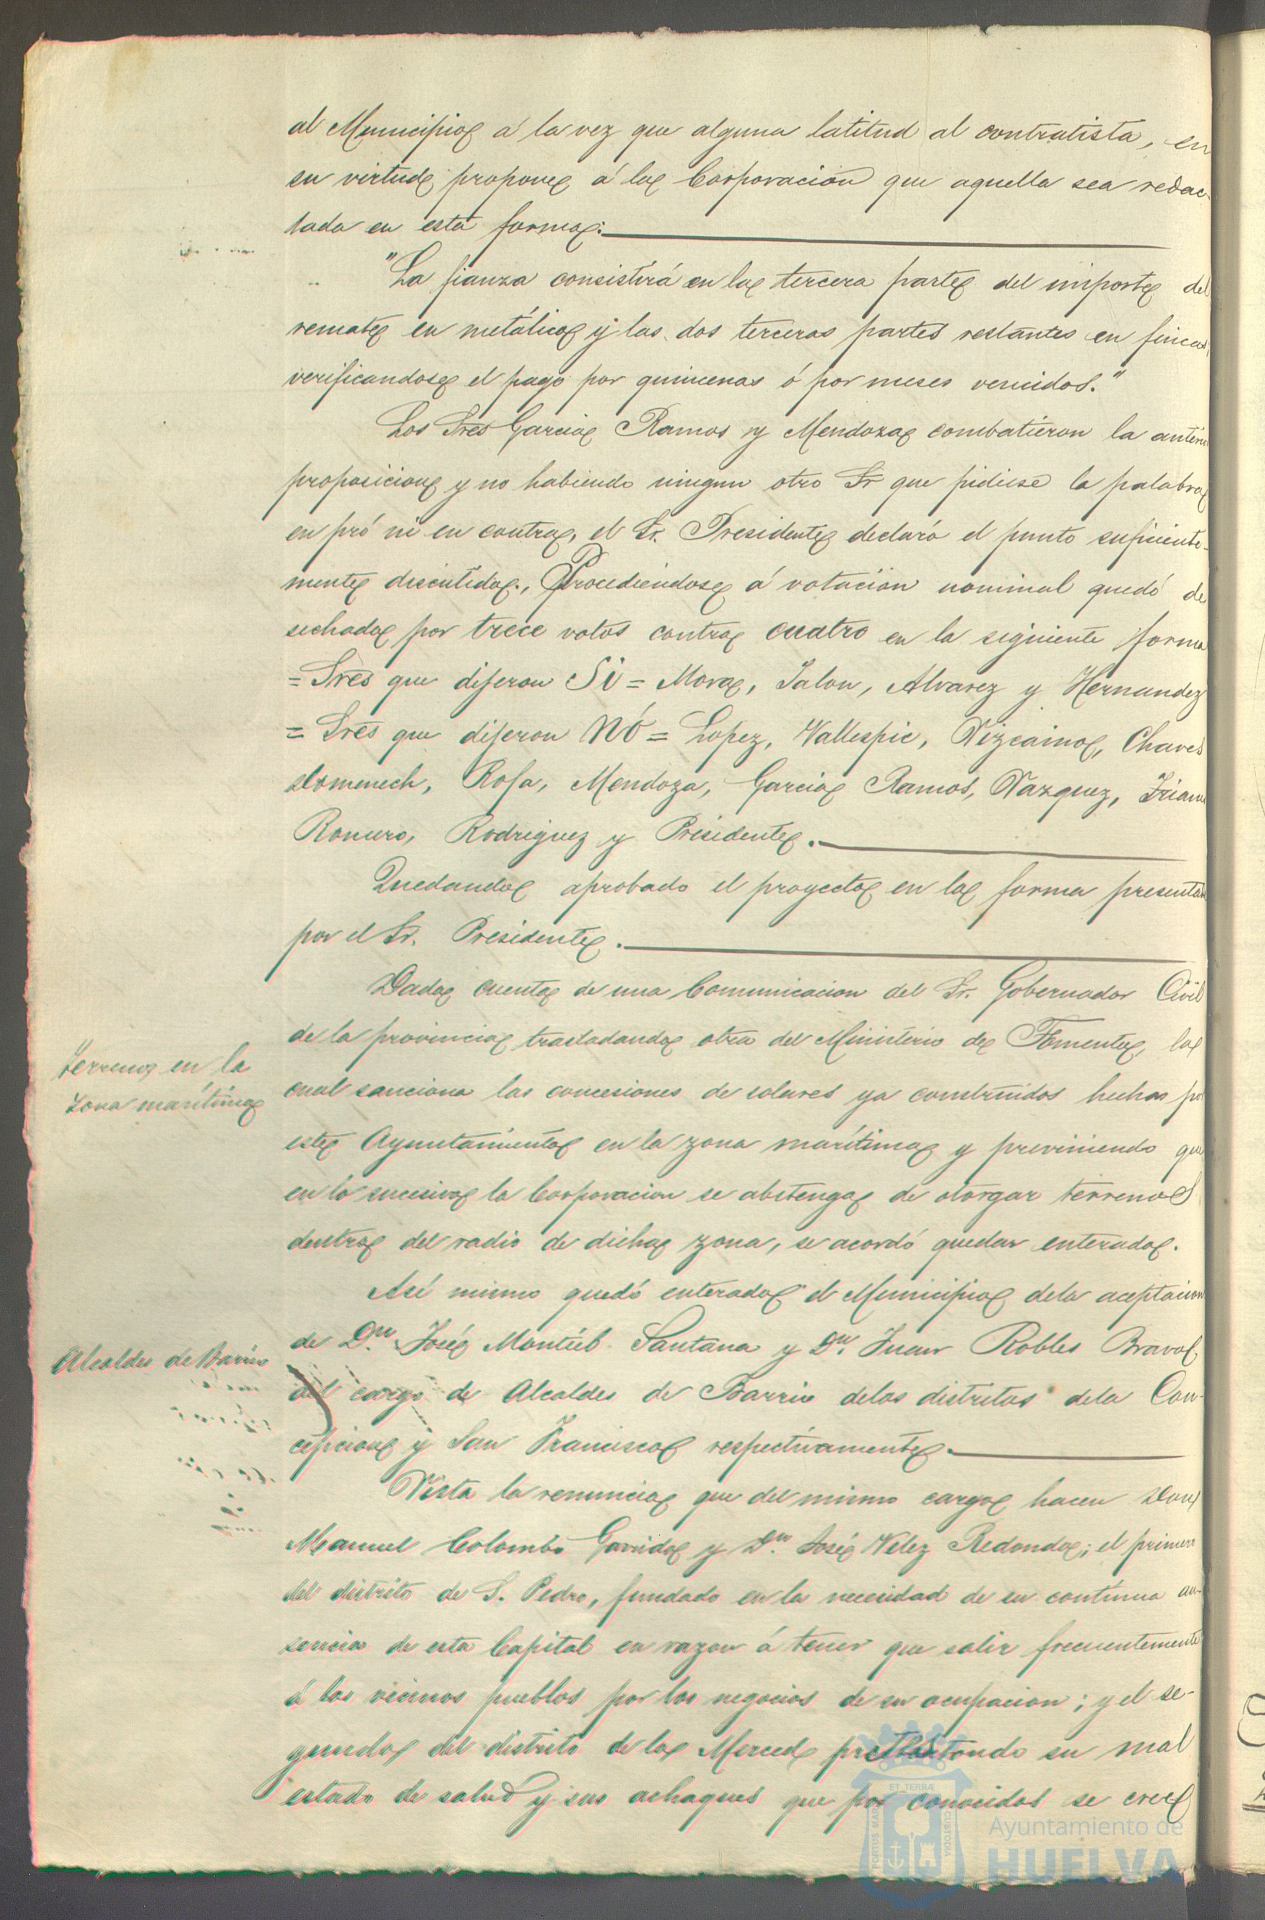 al Municipio á la vez que alguna latitud al contratista, en
su virtud propone á la Corporación que aquella sea redac-
tada en esta forma:
"La fianza consistirá en la tercera parte del importe del
remate en metálico y las dos terceras partes restantes en fincas,
verificandose el pago por quincenas ó por meses vencidos."
Los Sres Garcia Ramos y Mendoza combatieron la anterior
proposicion y no habiendo ningun otro Sr que pidiese la palabra
en pró ni en contra, el Sr. Presidente declaró el punto suficiente-
mente discutido., Procediéndose á votación nominal quedó de
sechada por trece votos contra cuatro en la siguiente forma
= Sres que dijeron Si = Mora, Jalon, Alvarez y Hernandez
= Sres que dijeron Nó = Lopez, Vallespir, Vizcaino, Chaves
Domenech, Rofa, Mendoza, Garcia Ramos, Vazquez, Triano
Romero, Rodriguez y Presidente.
Quedando aprobado el proyecto en la forma presentada
por el Sr. Presidente.
Dada cuenta de una Comunicacion del Sr. Gobernador Civil
de la provincia trasladando otra del Ministerio de Fomento, la
cual sanciona las concesiones de solares ya construidos hechas por
este Ayuntamiento en la zona marítima y previniendo que
en lo sucesivo la Corporacion se abstenga de otorgar terrenos
dentro del radio de dicha zona, se acordó quedar enterado.
Así mismo quedó enterado el Municipio dela aceptacion
de Dn. José Montiel Santana y Dn. Juan Robles Bravo
del cargo de Alcaldes de Barrio delos distritos dela Con-
cepcion y San Francisco respectivamente.
Vista la renuncia que del mismo cargo hacen Don
Manuel Colombo Garrido y Dn. José Velez Redondo; el primero
del distrito de S. Pedro, fundado en la necesidad de su contínua au-
sencia de esta Capital en razon á tener que salir frecuentemente
á los vecinos pueblos por los negocios de su ocupacion; y el se-
gundo del distrito de la Merced pretestando su mal
estado de salud y sus achaques que por conocidos se cree
Terreno en la
zona marítima
Alcaldes de Barrio
PORTUS MARIS
ET TERRÆ
CUSTODIA
Ayuntamiento de
HUELVA